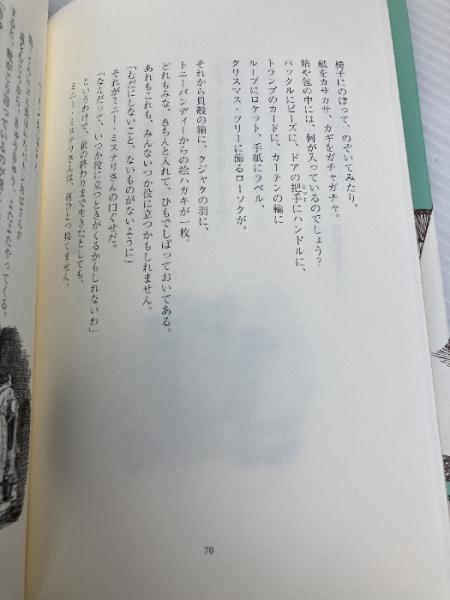 椅子にのぼって、のぞいてみたり、
紙をカサカサ、カギをガチャガチャ。
箱や包の中には、何が入っているのでしょう?
バックルにビーズに、ドアの把手にハンドルに、
トランプのカードに、カーテンの輪に
ループにロケット、手紙にラベル、
クリスマス・ツリーに飾るローソクが。
それから貝殻の箱に、クジャクの羽に、
トニーパンディーからの絵ハガキが一枚。
どれもみな、きちんと入れて、ひもでしばっておいてある。
あれもこれも、みんないつか役に立つかもしれません。
「むだにしないこと、ないものがないように」
それがミニー・ミステリさんの口ぐせだ。
「なんだって、いつか役に立つときがくるかもしれないわ」
というわけで、世の終わりまで生きたとしても、
ミニー・ミステリさんは、何ひとつ捨てません。
70